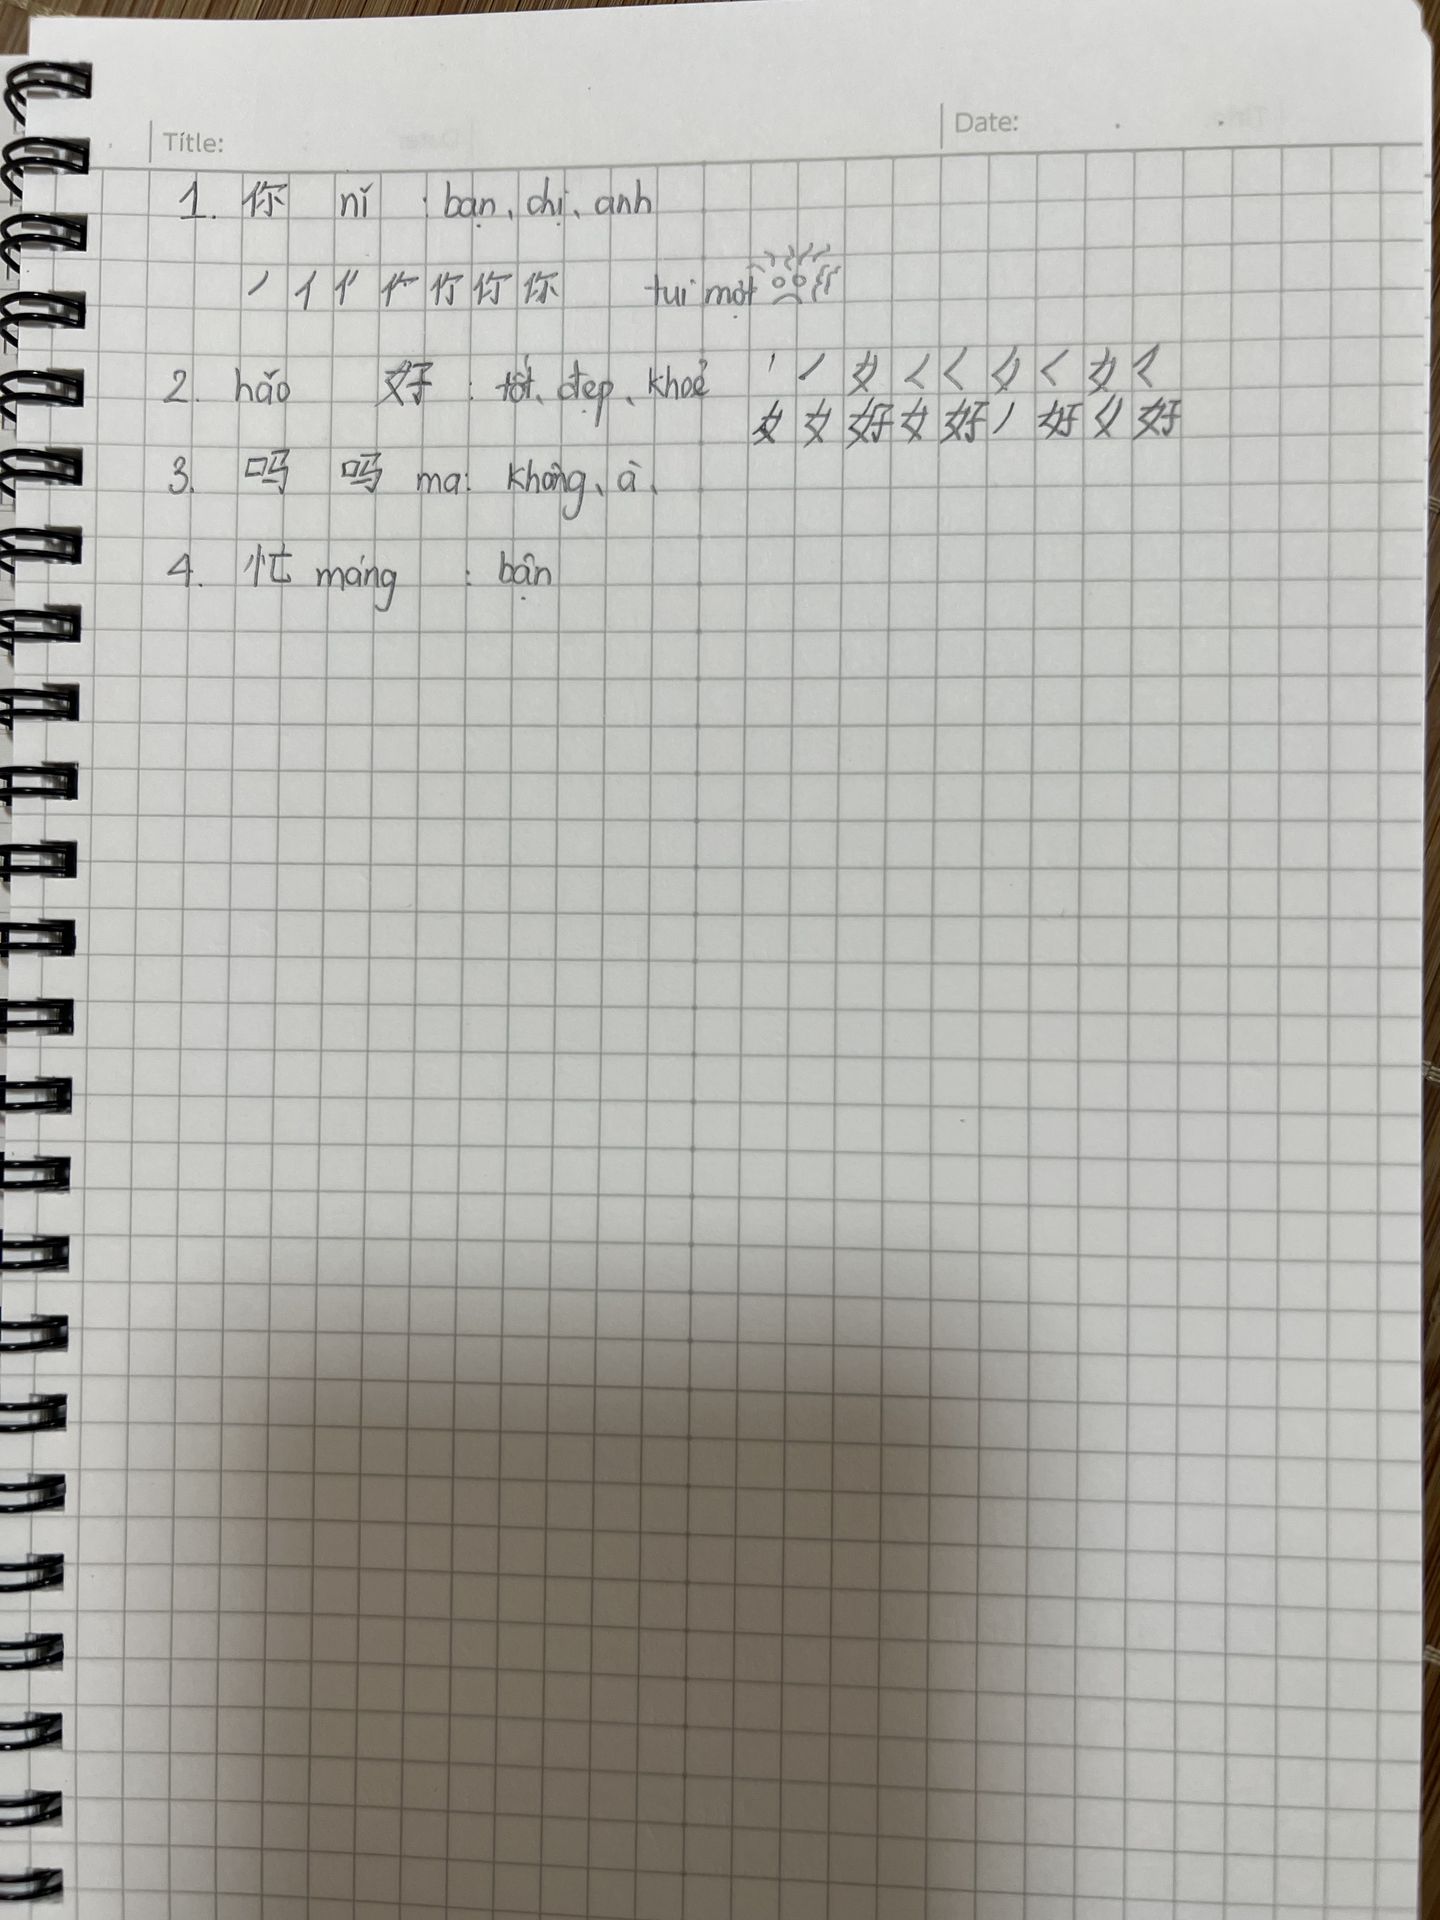 Title:
Date:
1. 你 nǐ : bạn、chị、anh
丿 亻 你 tui mệt
2. hǎo 好 : tốt、đẹp、khoẻ 丿 女 く く 女 く 女 く
女 女 好 女 好 丿 好 女 好
3. 吗 吗 ma: không、à、
4. 忙 máng : bận